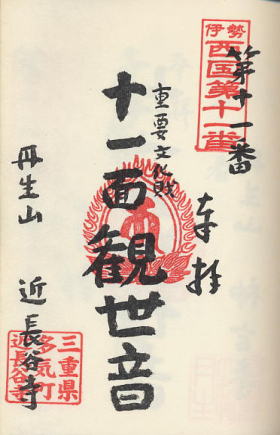 奉拝
第十一番
伊勢
西国第十一番
重要文化財
十一面観世音
丹生山
近長谷寺
三重県
多気町
近長谷寺